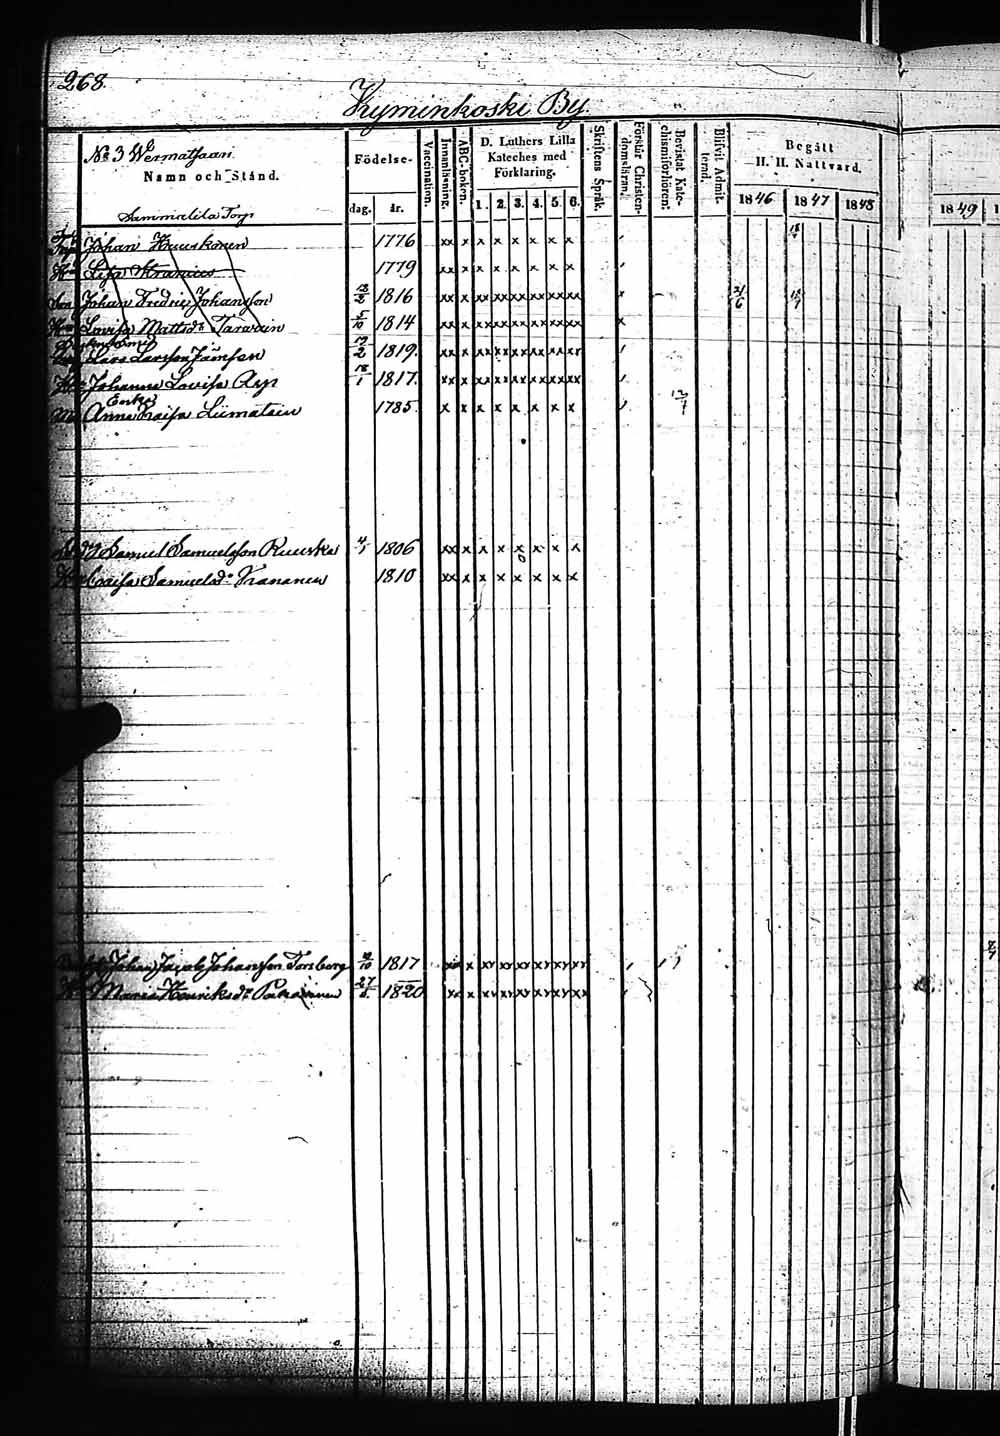 268.
Kyminkoski By
No 3 Wermatsaari
Namn och Stånd.
Födelse-
dag. år.
Vaccination.
Innanläsning.
ABC-boken.
D. Luthers Lilla
Kateches med
Förklaring.
1. 2. 3. 4. 5. 6.
Skriftens Språk.
Förstår Christen-
domsläran.
Bevistat Kate-
chismiförhören:
Blifvit Admit-
terad.
Begått
H. H. Nattvard.
1846 1847 1848
1849
Torp
Johan Kuuskonen 1776 xx x x x x x x x
1779 xx x x x x x x x
Son Johan Fredric Johansson 1816 xx x xx xx xx xx xx xx
Hu Lovisa Mattsdr Tarvain 5/10 1814 xx x xx xx xx xx xx xx
Lars Larsson Jämsen 1819. xx x xx xx xx xx xx xx
Hu Johanna Lovisa Asp 18/1 1817. xx x xx xx xx xx xx xx
Enka
Anna Caisa Liimatain 1785. x x x x x x x x
Samuel Samuelsson Ruuska 4/1 1806 xx x x x x x x x
Caisa Samuelsdr Kananen 1810 xx x x x x x x x
Johan Jacob Johansson Forsberg 1817 xx x xx xx xx xx xx xx
Maria Henriksdr 1820 xx x xx xx xx xx xx xx